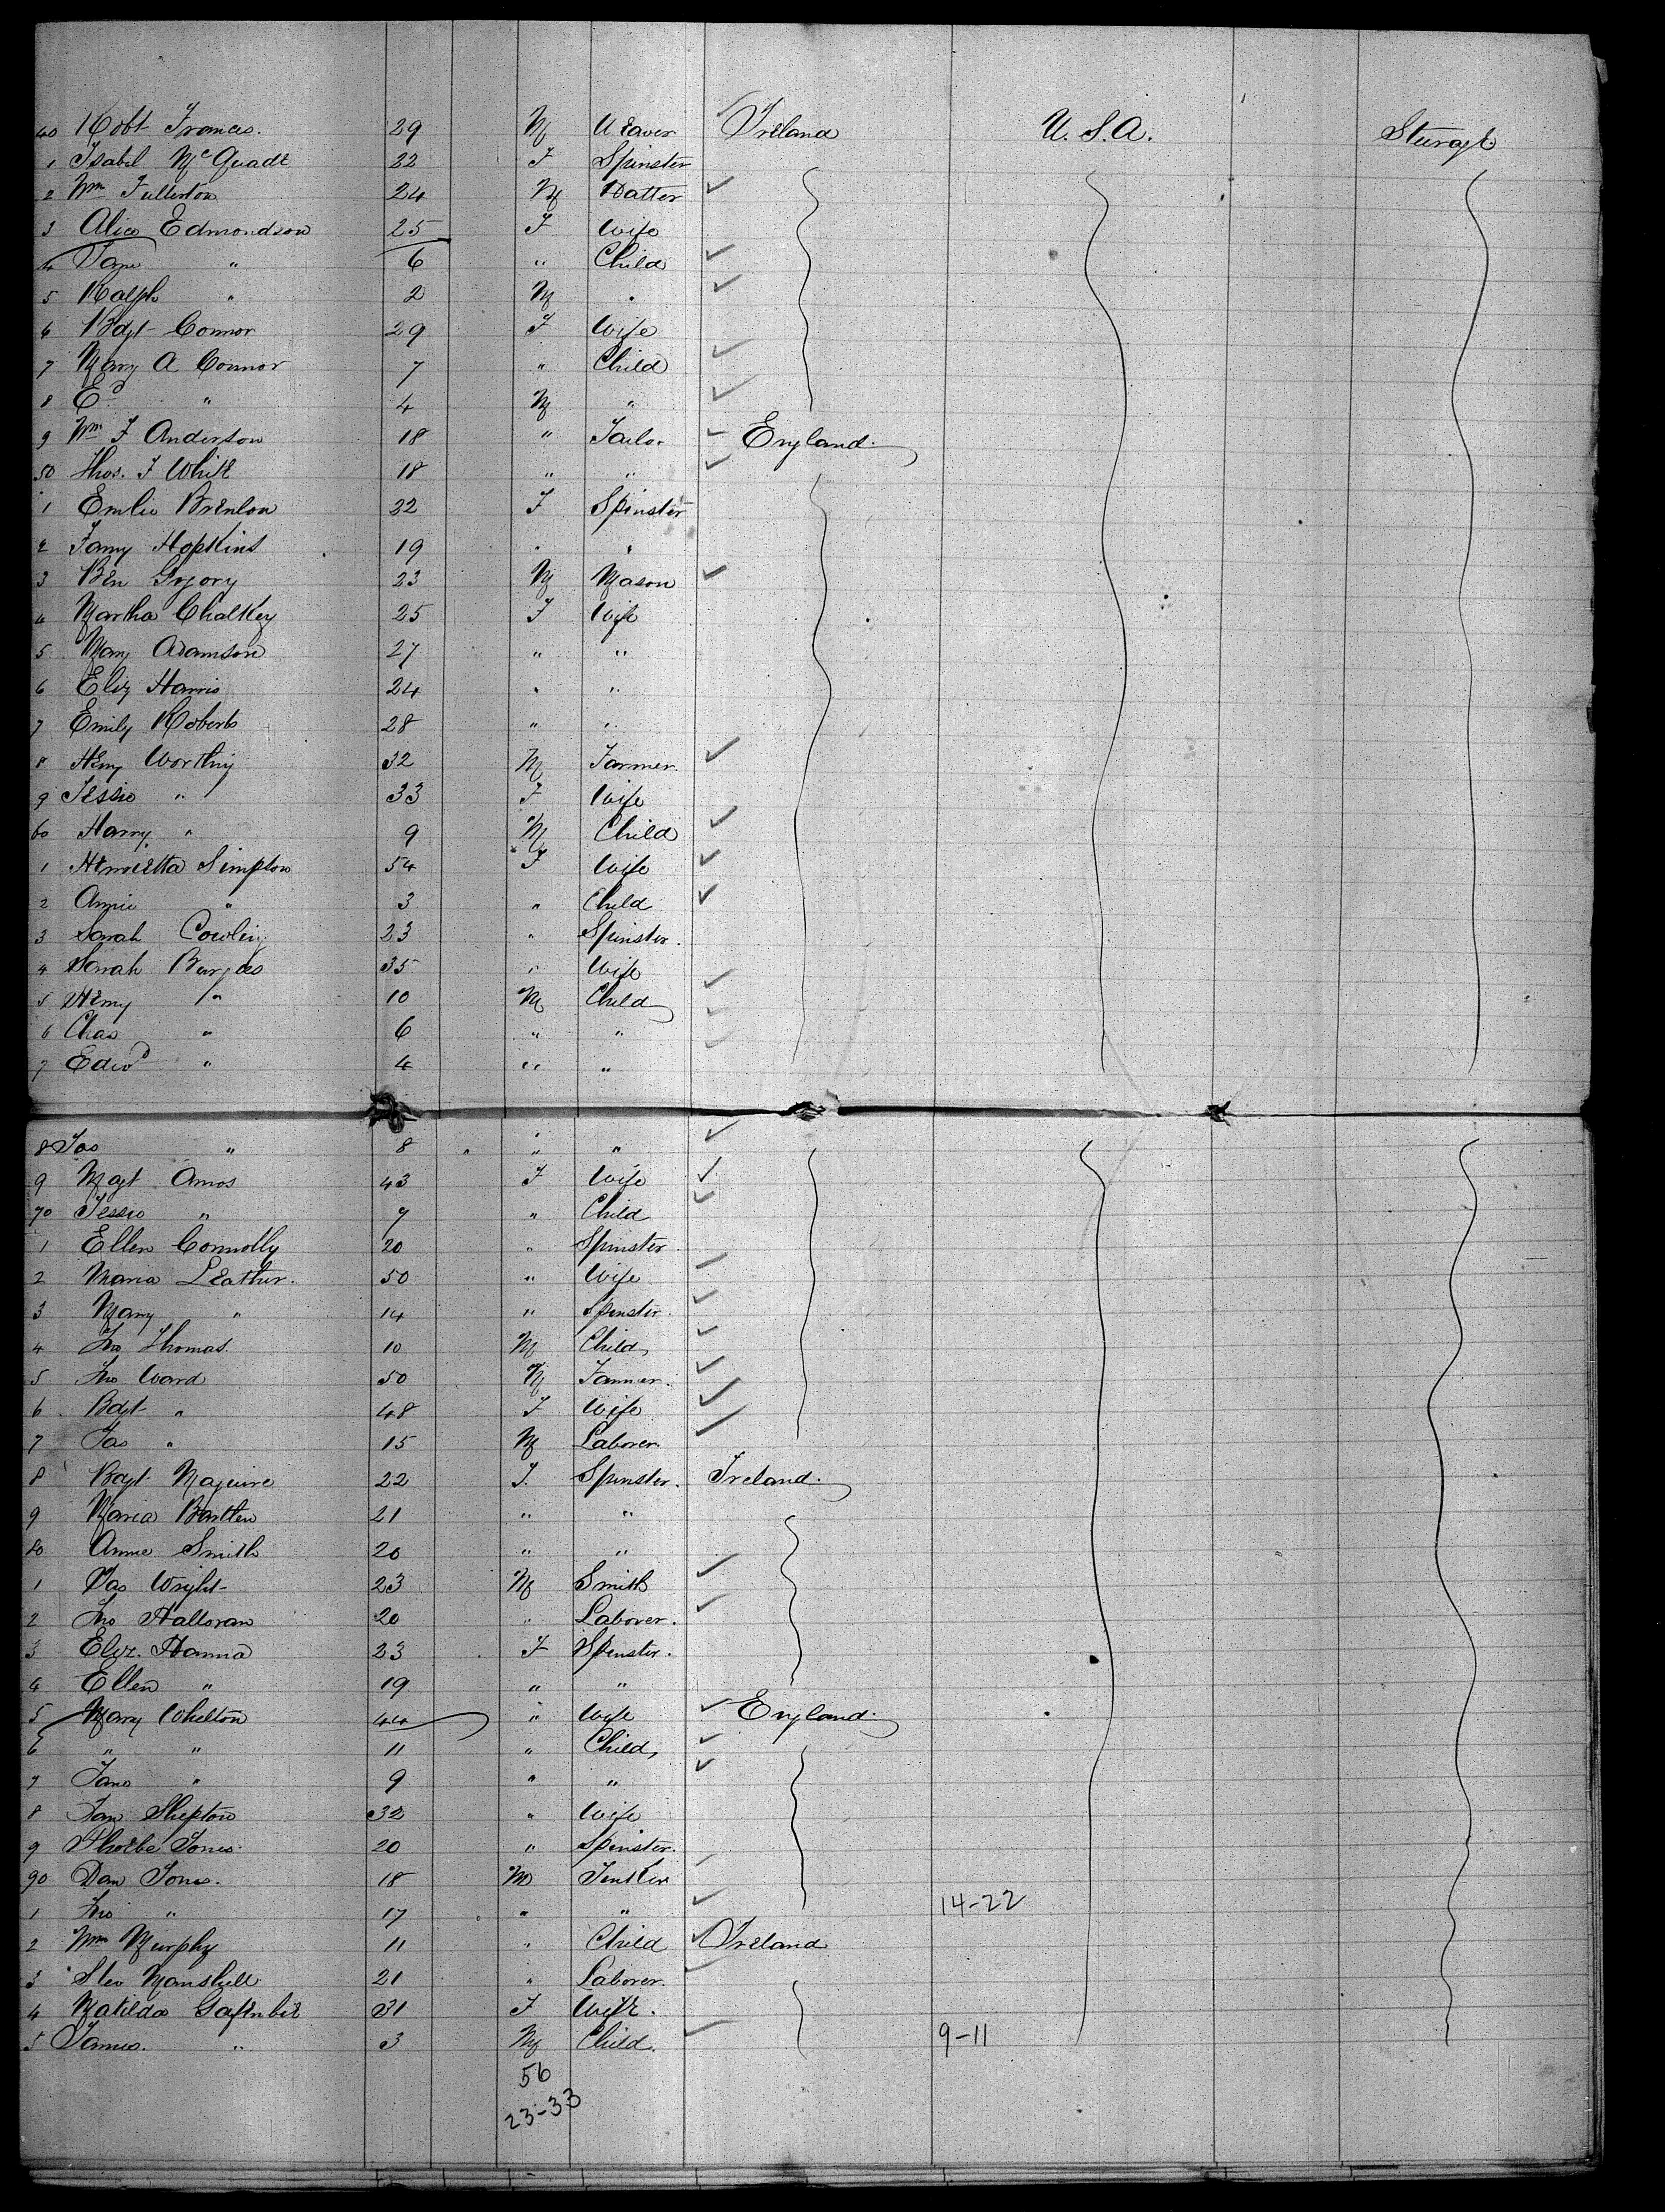 40 Robt Frances. 29 M Weaver Ireland U.S.A. Sturage
1 Isabel McQuade 22 F Spinster
2 Wm Fullerton 24 M Hatter
3 Alice Edmondson 25 F Wife
4 Jane " 6 " Child
5 Ralph " 2 M "
6 Bdgt Connor 29 F Wife
7 Mary A Connor 7 " Child
8 Ed " 4 M "
9 Wm F Anderson 18 " Tailor England
50 Thos. F White 18 " "
1 Emlie Brenlon 22 F Spinster
2 Fanny Hopkins 19 " "
3 Ben Grgory 23 M Mason
4 Martha Chalkey 25 F Wife
5 Mary Adamson 27 " "
6 Eliz Harris 24 " "
7 Emily Roberts 28 " "
8 Heny Worthing 32 M Farmer.
9 Jessie " 33 F Wife
60 Harry " 9 M Child
1 Henrietta Simpson 54 F Wife
2 Annie " 3 " Child
3 Sarah Cowling 23 " Spinster.
4 Sarah Burgess 35 " Wife
5 Heny " 10 M Child
6 Chas " 6 " "
7 Edwd " 4 " "
8 Jas " 8 " "
9 Magt Amos 43 F Wife
70 Jessie " 7 " Child
1 Ellen Connolly 20 " Spinster
2 Maria Leather. 50 " Wife
3 Mary " 14 " Spinster.
4 Jno Thomas. 10 M Child
5 Jno Ward 50 M Farmer.
6 Bdgt " 48 F Wife
7 Jas " 15 M Laborer
8 Bdgt Maguire 22 F. Spinster. Ireland.
9 Maria Bartlen 21 " "
80 Annie Smith 20 " "
1 Jas Wright 23 M Smith
2 Jno Halloran 20 " Laborer.
3 Eliz. Hanna 23 F Spinster.
4 Ellen " 19 " "
5 Mary Whelton 44 " Wife England.
6 " " 11 " Child
7 Jane " 9 " "
8 Jane Shepton 32 " Wife
9 Phoebe Jones 20 " Spinster.
90 Dan Jones. 18 M
1 Jno " 17 " " 14-22
2 Wm Murphy 11 " Child Ireland
3 Stev Manshell 21 " Laborer.
4 Matilda 31 F Wife.
5 James. " 3 M Child. 9-11
56
23-33